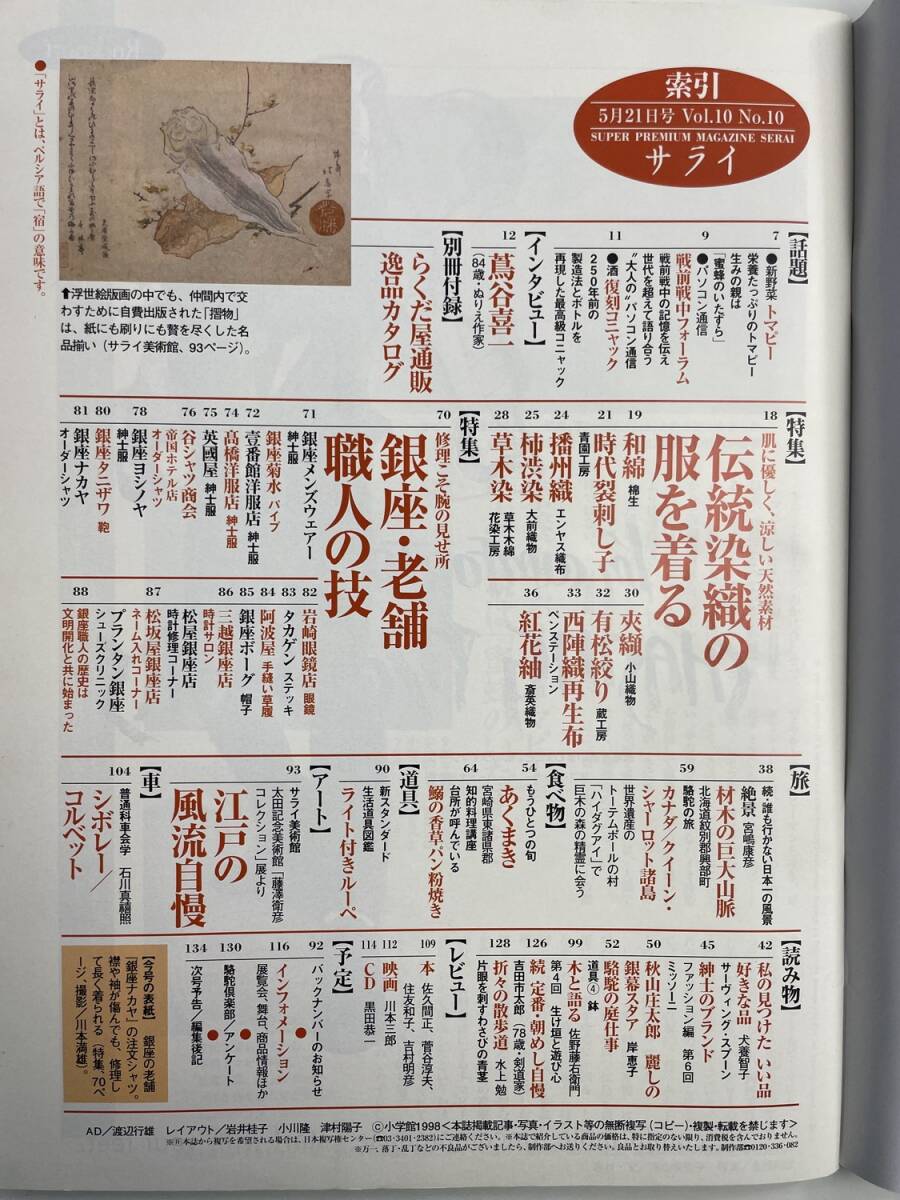 索引
5月21日号 Vol.10 No.10
SUPER PREMIUM MAGAZINE SERAI
サライ
●「サライ」とは、ペルシア語で「宿」の意味です。
↑浮世絵版画の中でも、仲間内で交
わすために自費出版された「摺物」
は、紙にも刷りにも贅を尽くした名
品揃い（サライ美術館、93ページ）。
【話題】
7
●新野菜 トマピー
栄養たっぷりのトマピー
生みの親は
「蜜蜂のいたずら」
9
●パソコン通信
戦前戦中フォーラム
戦前戦中の記憶を伝え
世代を超えて語り合う
“大人の”パソコン通信
11
●酒 復刻コニャック
250年前の
製造法とボトルを
再現した最高級コニャック
【インタビュー】
12
蔦谷喜一
（84歳・ぬりえ作家）
【別冊付録】
らくだ屋通販
逸品カタログ
【特集】
18
肌に優しく、涼しい天然素材
伝統染織の
服を着る
19
和綿 棉生
21
時代裂刺し子
青園工房
24
播州織 エンヤス織布
25
柿渋染 大前織物
28
草木染 草木木綿
花染工房
30
夾纈 小山織物
32
有松絞り 蔵工房
33
西陣織再生布
ペンステーション
36
紅花紬 斎英織物
【特集】
70
修理こそ腕の見せ所
銀座・老舗
職人の技
71
銀座メンズウェアー
紳士服
72
銀座菊水 パイプ
壹番館洋服店 紳士服
74
高橋洋服店 紳士服
75
英國屋 紳士服
76
谷シャツ商会
帝国ホテル店
オーダーシャツ
78
銀座ヨシノヤ
紳士靴
80
銀座タニザワ 鞄
81
銀座ナカヤ
オーダーシャツ
82
岩崎眼鏡店 眼鏡
83
タカゲン ステッキ
84
阿波屋 手縫い草履
85
銀座ボーグ 帽子
86
三越銀座店
時計サロン
松屋銀座店
時計修理コーナー
87
松坂屋銀座店
ネーム入れコーナー
プランタン銀座
シューズクリニック
88
銀座職人の歴史は
文明開化と共に始まった
【旅】
38
続・誰も行かない日本一の風景
絶景 宮嶋康彦
材木の巨大山脈
北海道紋別郡興部町
59
駱駝の旅
カナダ／クイーン・
シャーロット諸島
世界遺産の
トーテムポールの村
「ハイダグアイ」で
巨木の森の精霊に会う
【食べ物】
54
もうひとつの旬
あくまき
宮崎県東諸県郡
64
知的料理講座
台所が呼んでいる
鰯の香草パン粉焼き
【道具】
90
新スタンダード
生活道具図鑑
ライト付きルーペ
【アート】
93
サライ美術館
太田記念美術館「藤澤衛彦
コレクション」展より
江戸の
風流自慢
【車】
104
普通科車会学 石川真禧照
シボレー／
コルベット
【読み物】
42
私の見つけた いい品
好きな品 犬養智子
サーヴィング・スプーン
45
紳士のブランド
ファッション編 第6回
ミッソーニ
50
秋山庄太郎 麗しの
銀幕スタア 岸恵子
52
駱駝の庭仕事
道具④ 鉢
99
木と語る 佐野藤右衛門
第4回 生け垣と遊び心
126
続 定番・朝めし自慢
吉田市太郎（78歳・剣道家）
128
折々の散歩道 水上勉
片眼を刺すわさびの青茎
【レビュー】
109
本 佐久間正、菅谷淳夫、
住友和子、吉村明彦
112
映画 川本三郎
114
CD 黒田恭一
【予定】
92
バックナンバーのお知らせ
116
●インフォメーション
展覧会、舞台、商品情報ほか
130
●駱駝倶楽部／アンケート
134
●次号予告／編集後記
【今号の表紙】 銀座の老舗
「銀座ナカヤ」の注文シャツ。
襟や袖が傷んでも、修理し
て長く着られる（特集、70ペ
ージ、撮影／川本満雄）。
AD／渡辺行雄 レイアウト／岩井桂子 小川隆 津村陽子 ©小学館1998＜本誌掲載記事・写真・イラスト等の無断複写（コピー）・複製・転載を禁じます＞
※本誌から複写を希望される場合は、日本複写権センター（☎03-3401-2382）にご連絡ください。※本誌で紹介している商品の価格は、特に指定のない限り、消費税を含んでおりません。
※万一、落丁・乱丁などの不良品がございましたら、制作部へお送りください。良品とお取り替えいたします。制作部☎0120-336-082